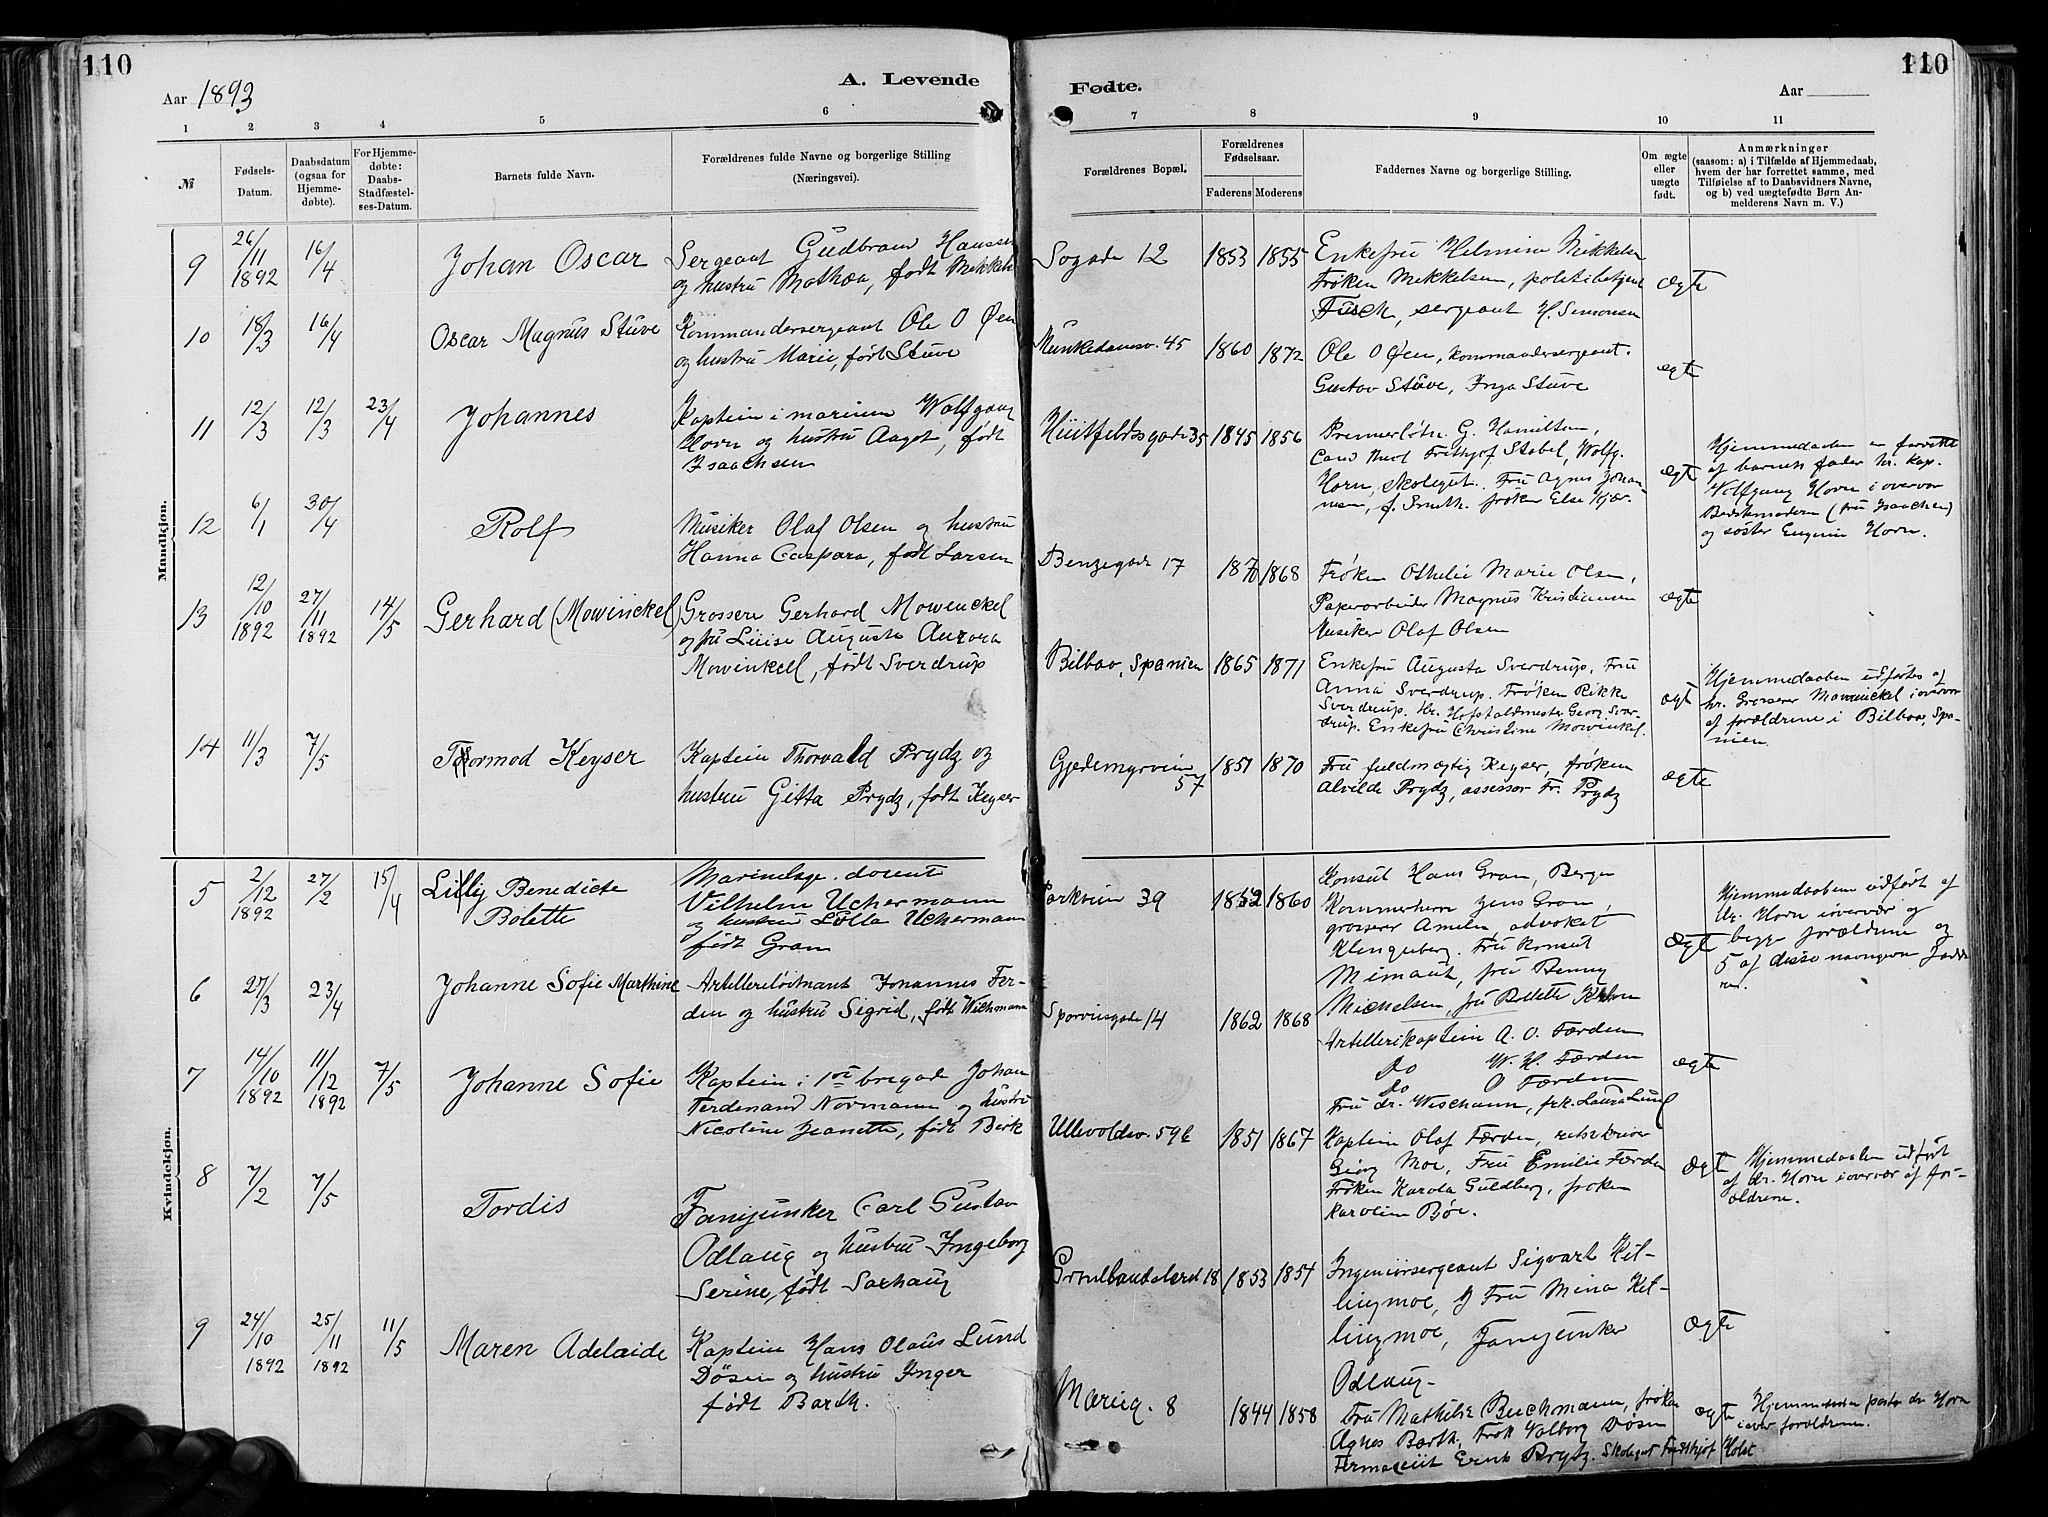 110
110
A. Levende
Fødte.
Aar 1893
Aar
1 2 3 4 5 6 7 8 9 10 11
№
Fødsels-
Datum.
Daabsdatum
(ogsaa for
Hjemme-
døbte).
For Hjemme-
døbte:
Daabs-
Stadfæstel-
ses-Datum.
Barnets fulde Navn.
Forældrenes fulde Navne og borgerlige Stilling
(Næringsvei).
Forældrenes Bopæl.
Forældrenes
Fødselsaar.
Faderens Moderens
Faddernes Navne og borgerlige Stilling.
Om ægte
eller
uægte
født.
Anmærkninger
(saasom: a) i Tilfælde af Hjemmedaab,
hvem der har forrettet samme, med
Tilføielse af to Daabsvidners Navne,
og b) ved uægtefødte Børn An-
melderens Navn m. V.)
Mandkjøn.
9 26/11 1892 16/4 Johan Oscar
Sergeant Gudbrand Hanssen
og hustru Mathea, født Mikkels
Sogade 12 1853 1855
Enkefru Helmine Mikkelsen
Frøken Mikkelsen, politibetjent
Fusch, sergeant H. Simonsen
ægte
10 18/3 16/4 Oscar Magnus Stuve
Kommandersergeant Ole O Øen
og hustru Marie, født Stuve
Munkedamsv. 45 1860 1872
Ole O Øen, kommandersergeant.
Gustav Stuve, Inga Stuve
ægte
11 12/3 12/3 23/4 Johannes
Kaptein i marinen Wolfgang
Horn og hustru Aagot, født
Isaachsen
Huitfeldtsgade 35 1845 1856
Premierløtn. G. Hamilton,
Cand theol Frithjof Stabel, Wolfg.
Horn, skolegut. Fru Agnes Johan-
nsen, f. Smith. frøken Else Kjær.
ægte
Hjemmedaaben er forrettet
af barnets fader hr. kap.
Wolfgang Horn i overvær
Bedstmoderen (fru Isaachsen)
og søster Eugenie Horn.
12 6/1 30/4 Rolf
Musiker Olaf Olsen og hustru
Hanna Caspara, født Larsen
Benzegade 17 1870 1868
Frøken Othelie Marie Olsen,
Papirarbeider Magnus Kristiansen
Musiker Olaf Olsen
ægte
13 12/10 1892 27/11 1892 14/5 Gerhard (Mowinckel)
Grosserer Gerhard Mowinckel
og fru Luise Auguste Aurora
Mowinkell, født Sverdrup
Bilbao, Spanien 1865 1871
Enkefru Augusta Sverdrup, Fru
Anna Sverdrup. Frøken Rikke
Sverdrup. Hr. Hofstaldmester Georg Sver-
drup. Enkefru Christine Mowinkel.
ægte
Hjemmedaaben udførtes af
hr. Grosserer Mowinckel i overvær
af forældrene i Bilbao, Spa-
nien.
14 11/3 7/5 Thormod Keyser
Kaptein Thorvald Prydz og
hustru Gitta Prydz, født Keyser
Gjedemyrveien
57
1851 1870
Fru fuldmægtig Keyser, frøken
Alvilde Prydz, assessor Fr. Prydz
ægte
Kvindekjøn.
5 2/12 1892 27/2 15/4 Lilly Benedicte
Bolette
Marinelæge, docent
Vilhelm Uchermann
og hustru Lolla Uchermann
født Gran
Parkveien 39 1852 1860
Konsul Hans Gran, Bergen
Kammerherre Jens Gran,
grosserer Ameln, advokat
Klingenberg. Fru konsul
Mimaut, fru Benny
Michelsen, fru Bolette
ægte
Hjemmedaaben udført af
Hr. Horn i overvær og
begge forældrene og
5 af disse navngivne Fadde
rne.
6 27/3 23/4 Johanne Sofie Marthine
Artilleriløitnant Johannes Fær-
den og hustru Sigrid, født Wishmann
Sporveisgade 14 1862 1868
Artillerikaptein A. O. Færden
Do W. H. Færden
Do O Færden
Fru dr. Wischann, frk. Laura Lund
ægte
7 14/10 1892 11/12 1892 7/5 Johanne Sofie
Kaptein i 1ste brigade Johan
Ferdenand Normann og hustru
Nicoline Jeanette, født Birk
Ullevoldsv. 59b 1851 1867
Kaptein Olaf Færden, retsskriver
Georg Moe, Fru Emilie Færden
Frøken Karola Guldberg, frøken
Karoline Bøe.
ægte
Hjemmedaaben udført
af dr. Horn i overvær af for-
ældrene.
8 7/2 7/5 Tordis
Fanejunker Carl Gustav
Odlaug og hustru Ingeborg
Serine, født Sarhaug
18 1853 1854
Ingeniørsergeant Sigvart Kil-
lingmoe, Fru Mina Kil-
lingmoe, Fanejunker
Odlaug-
ægte
9 24/10 1892 25/11 1892 11/5 Maren Adelaide
Kaptein Hans Olaus Lund
Døsen og hustru Inger
født Barth.
Marieg. 8 1844 1858
Fru Mathilde Buchmann, frøken
Agnes Barth, Frøk Valborg Døsen
Farmaceut Erik Prydz. Skolegut Fridthjof Holst
ægte
Hjemmedøbt pastor dr Horn
i over forældrene.